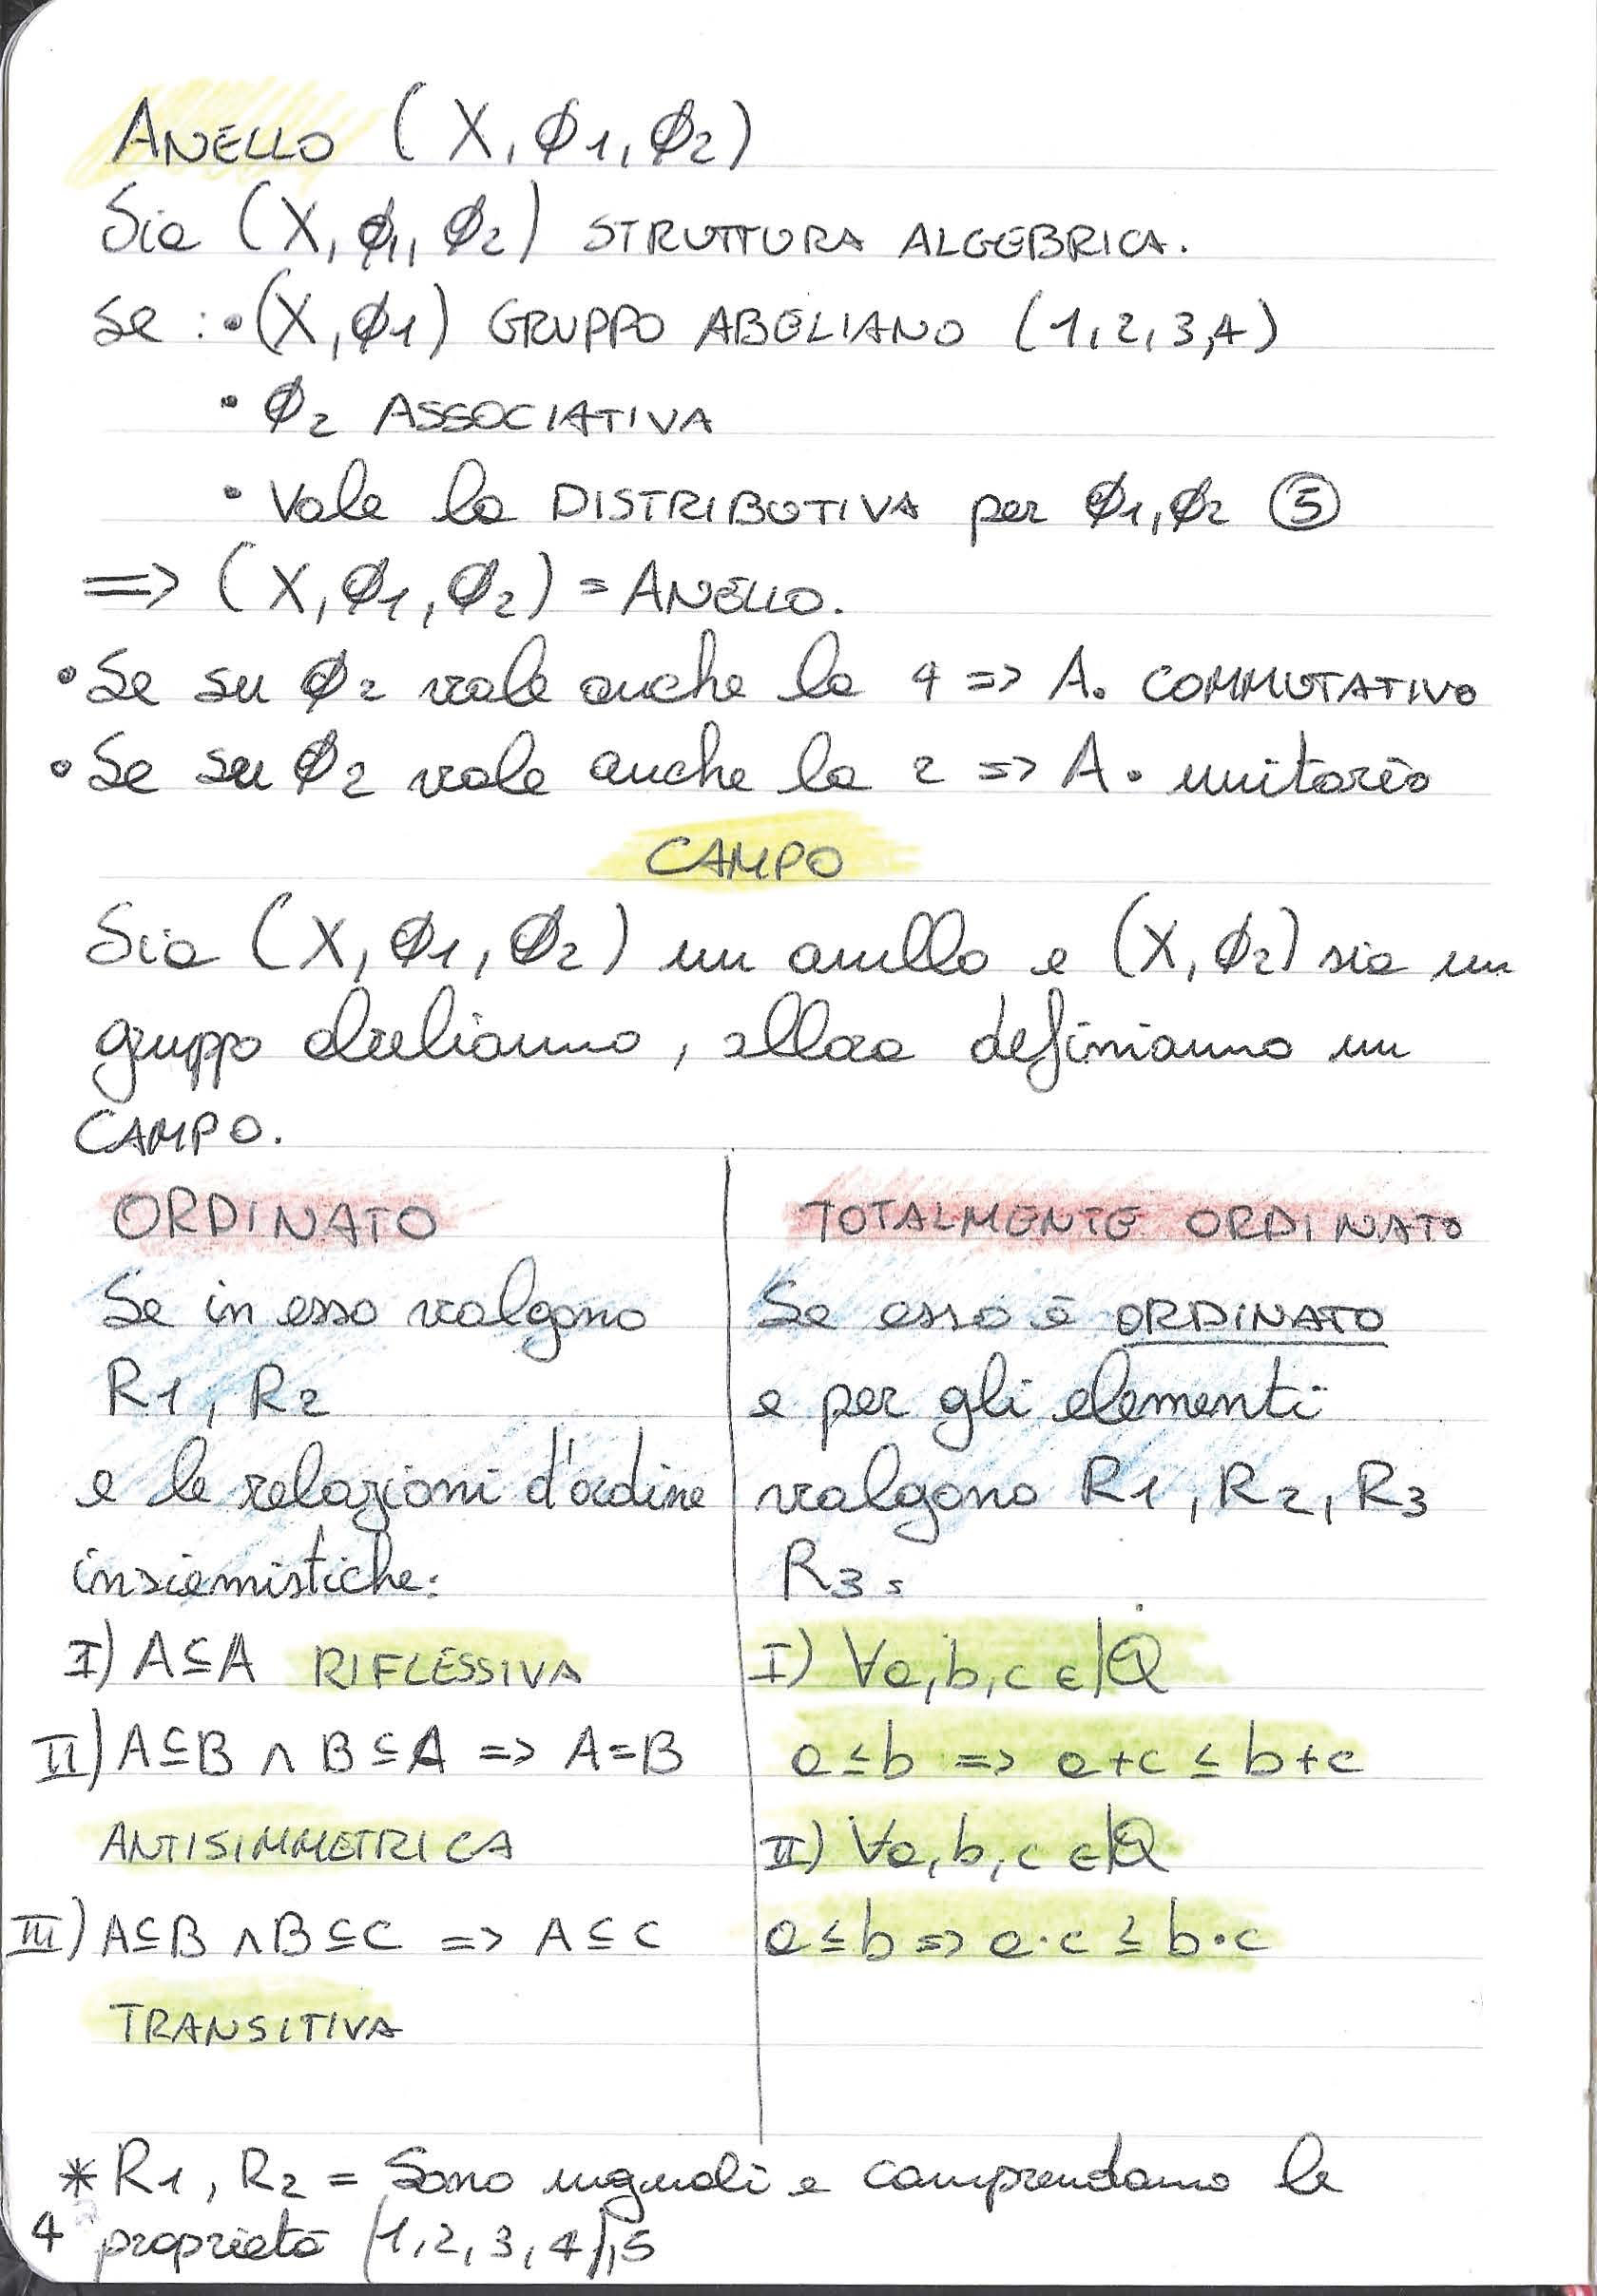 ANELLO (X, ϕ1, ϕ2)
Sia (X, ϕ1, ϕ2) STRUTTURA ALGEBRICA.
Se : • (X, ϕ1) GRUPPO ABELIANO (1, 2, 3, 4)
• ϕ2 ASSOCIATIVA
• Vale la DISTRIBUTIVA per ϕ1, ϕ2 ⑤
=> (X, ϕ1, ϕ2) = ANELLO.
• Se su ϕ2 vale anche la 4 => A. COMMUTATIVO
• Se su ϕ2 vale anche la 2 => A. unitario
CAMPO
Sia (X, ϕ1, ϕ2) un anello e (X, ϕ2) sia un
gruppo abeliano, allora definiamo un
CAMPO.
ORDINATO
Se in esso valgono
R1, R2
e le relazioni d'ordine
insiemistiche:
I) A⊆A RIFLESSIVA
II) A⊆B ∧ B⊆A => A=B
ANTISIMMETRICA
III) A⊆B ∧ B⊆C => A⊆C
TRANSITIVA
TOTALMENTE ORDINATO
Se esso è ORDINATO
e per gli elementi
valgono R1, R2, R3
R3 =
I) ∀a, b, c ∈ ℚ
a≤b => a+c ≤ b+c
II) ∀a, b, c ∈ ℚ
a≤b => a·c ≤ b·c
* R1, R2 = Sono uguali e comprendono le
proprietà (1, 2, 3, 4), 5
4